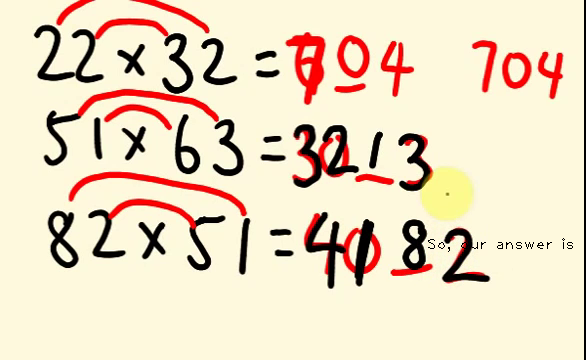 22 x 32 = 704 704
51 x 63 = 3213
82 x 51 = 4182
So, our answer is